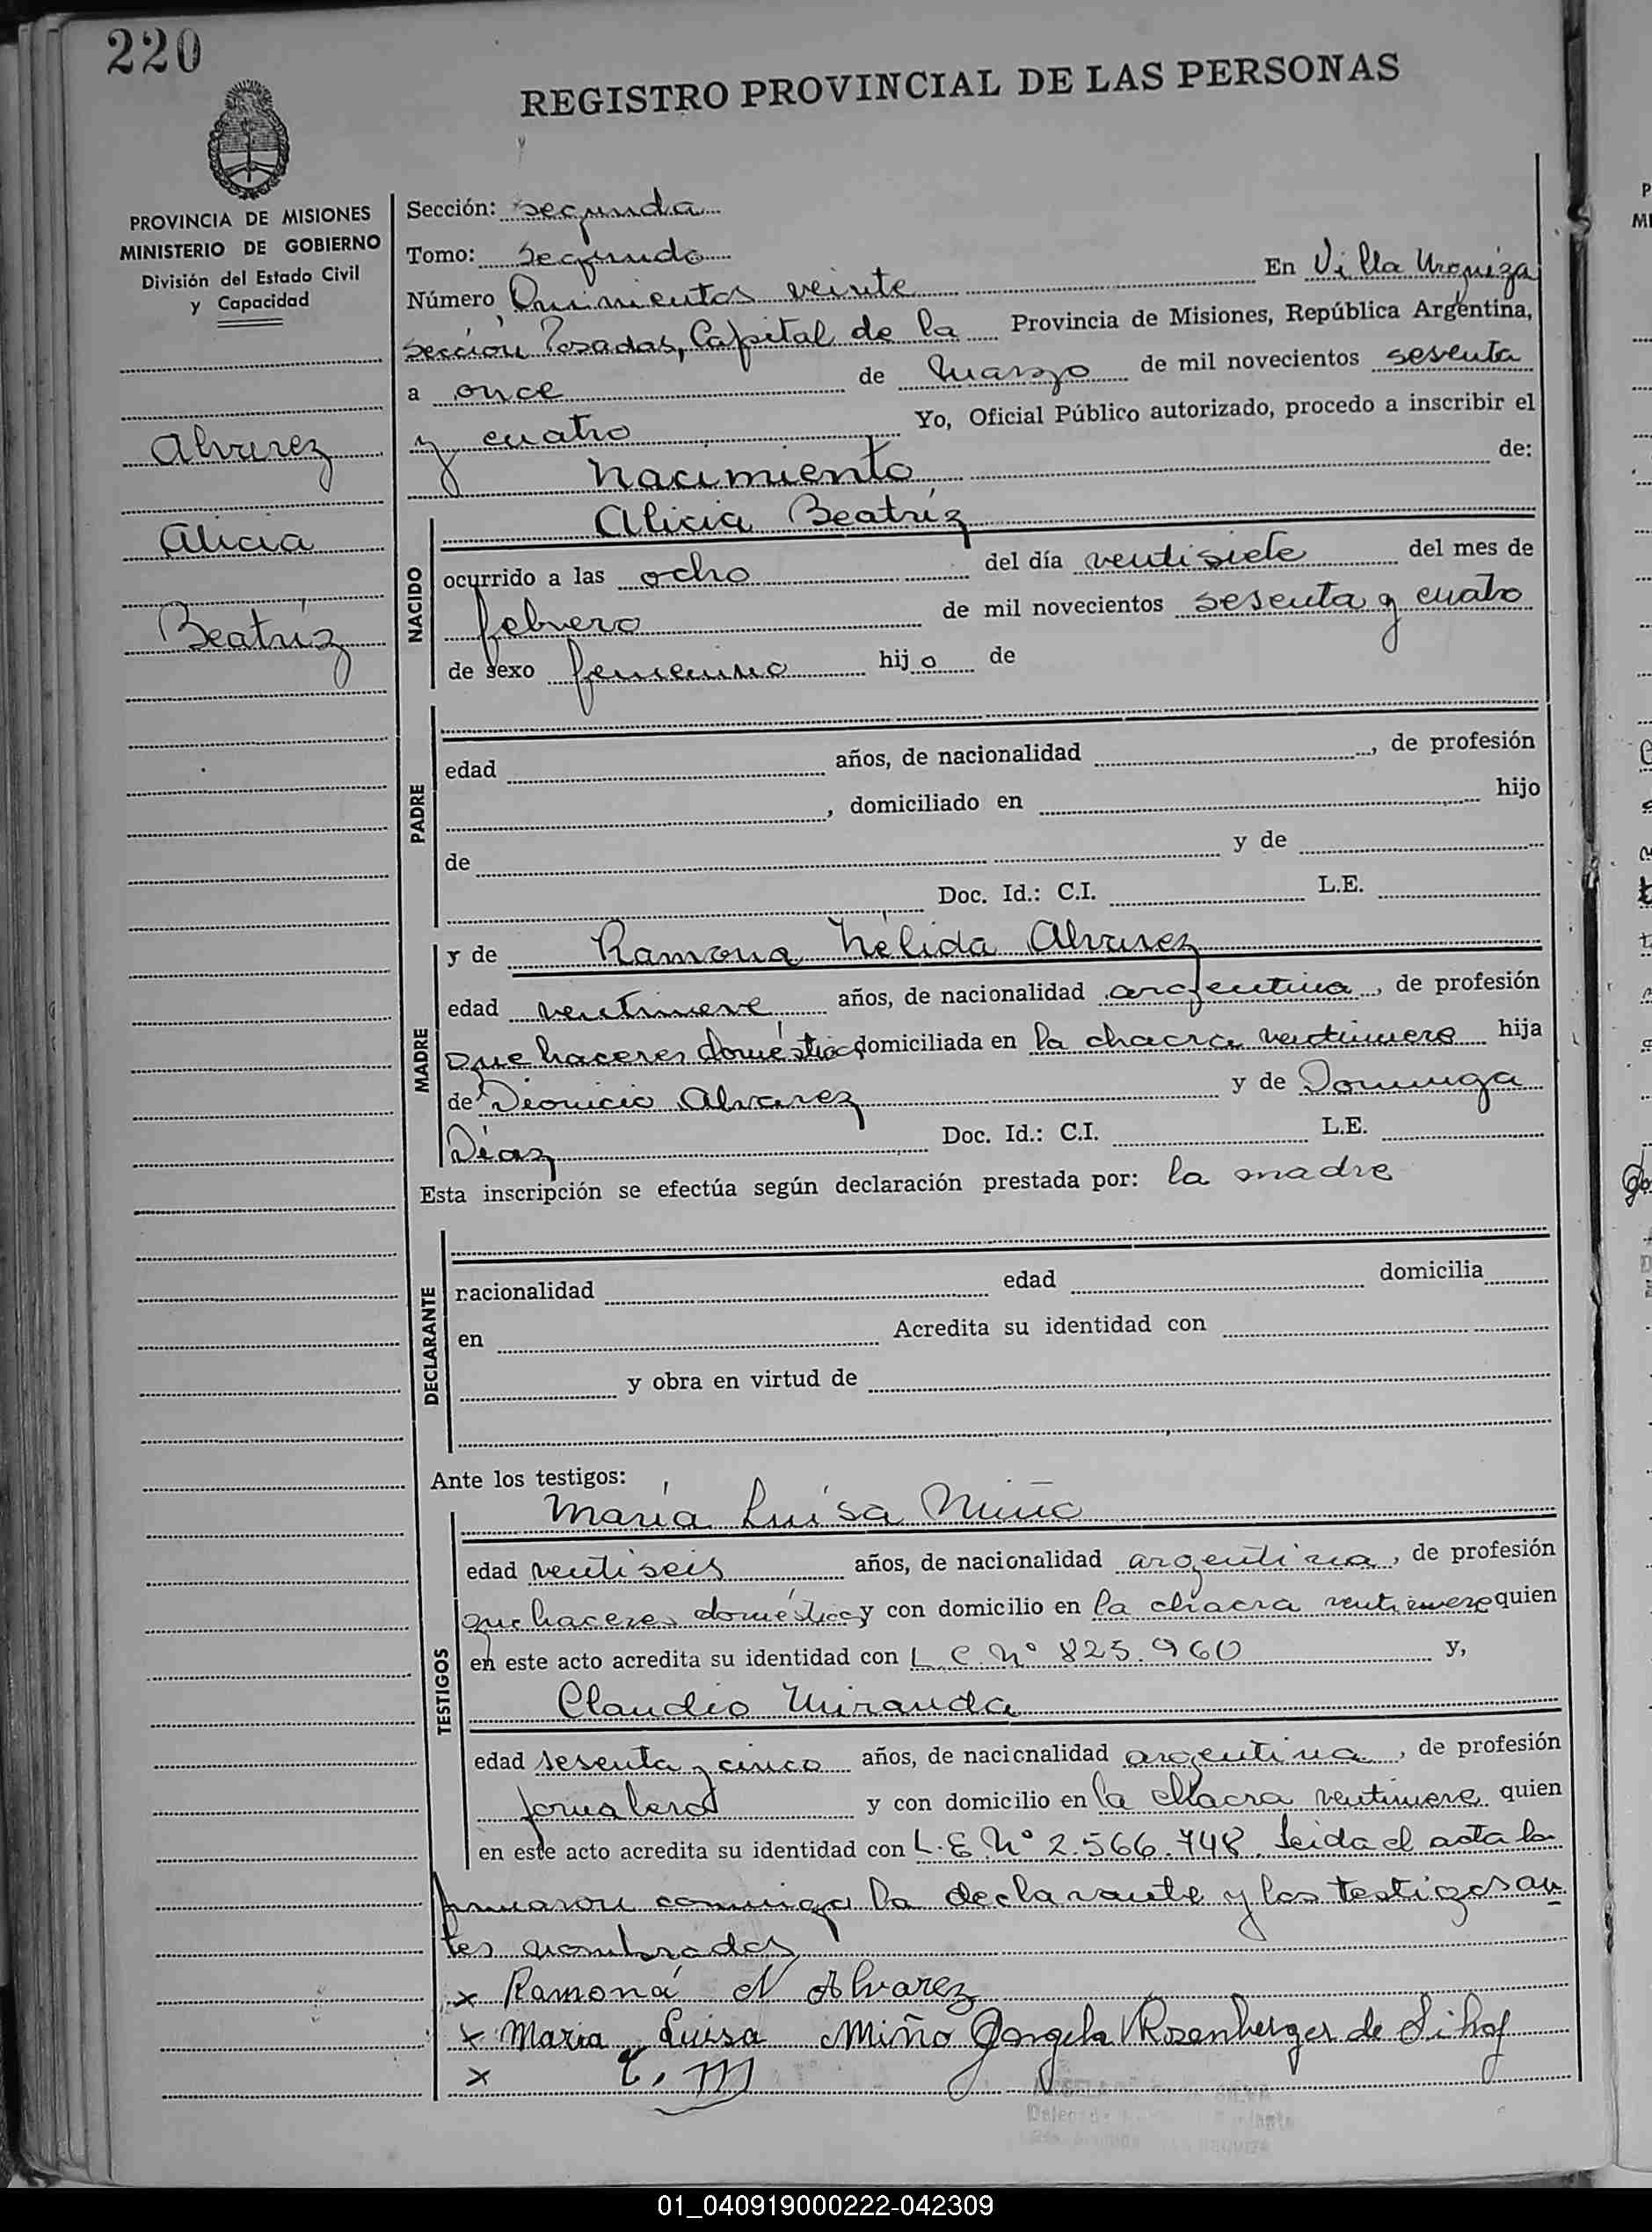 220
REGISTRO PROVINCIAL DE LAS PERSONAS
PROVINCIA DE MISIONES
MINISTERIO DE GOBIERNO
División del Estado Civil
y Capacidad
Alvarez
Alicia
Beatríz
Sección: segunda
Tomo: Segundo
Número Quinientos veinte En Villa Urquiza
Sección Posadas, Capital de la Provincia de Misiones, República Argentina,
a once de Marzo de mil novecientos sesenta
y cuatro Yo, Oficial Público autorizado, procedo a inscribir el
nacimiento de:
NACIDO
Alicia Beatríz
ocurrido a las ocho del día ventisiete del mes de
febrero de mil novecientos sesenta y cuatro
de sexo femenino hijo de
PADRE
edad años, de nacionalidad , de profesión
, domiciliado en hijo
de y de
Doc. Id.: C.I. L.E.
MADRE
y de Ramona Nélida Alvarez
edad ventinueve años, de nacionalidad argentina, de profesión
que haceres domésticos domiciliada en la chacra ventinueve hija
de Dionicio Alvarez y de Dominga
Díaz Doc. Id.: C.I. L.E.
Esta inscripción se efectúa según declaración prestada por: la madre
DECLARANTE
nacionalidad edad domicilia
en Acredita su identidad con
y obra en virtud de
Ante los testigos:
TESTIGOS
María Luisa Miño
edad ventiseis años, de nacionalidad argentina, de profesión
que haceres domésticos y con domicilio en la chacra ventinueve quien
en este acto acredita su identidad con L.C. Nº 825.960 y,
Claudio Miranda
edad sesenta y cinco años, de nacionalidad argentina, de profesión
jornalero y con domicilio en la chacra ventinueve quien
en este acto acredita su identidad con L.E. Nº 2.566.748. Leida el acta la
firmaron conmigo la declarante y los testigos an
tes nombrados
x Ramona N Alvarez
x Maria Luisa Miño Angela Rosenberger de
x C. M
01_040919000222-042309